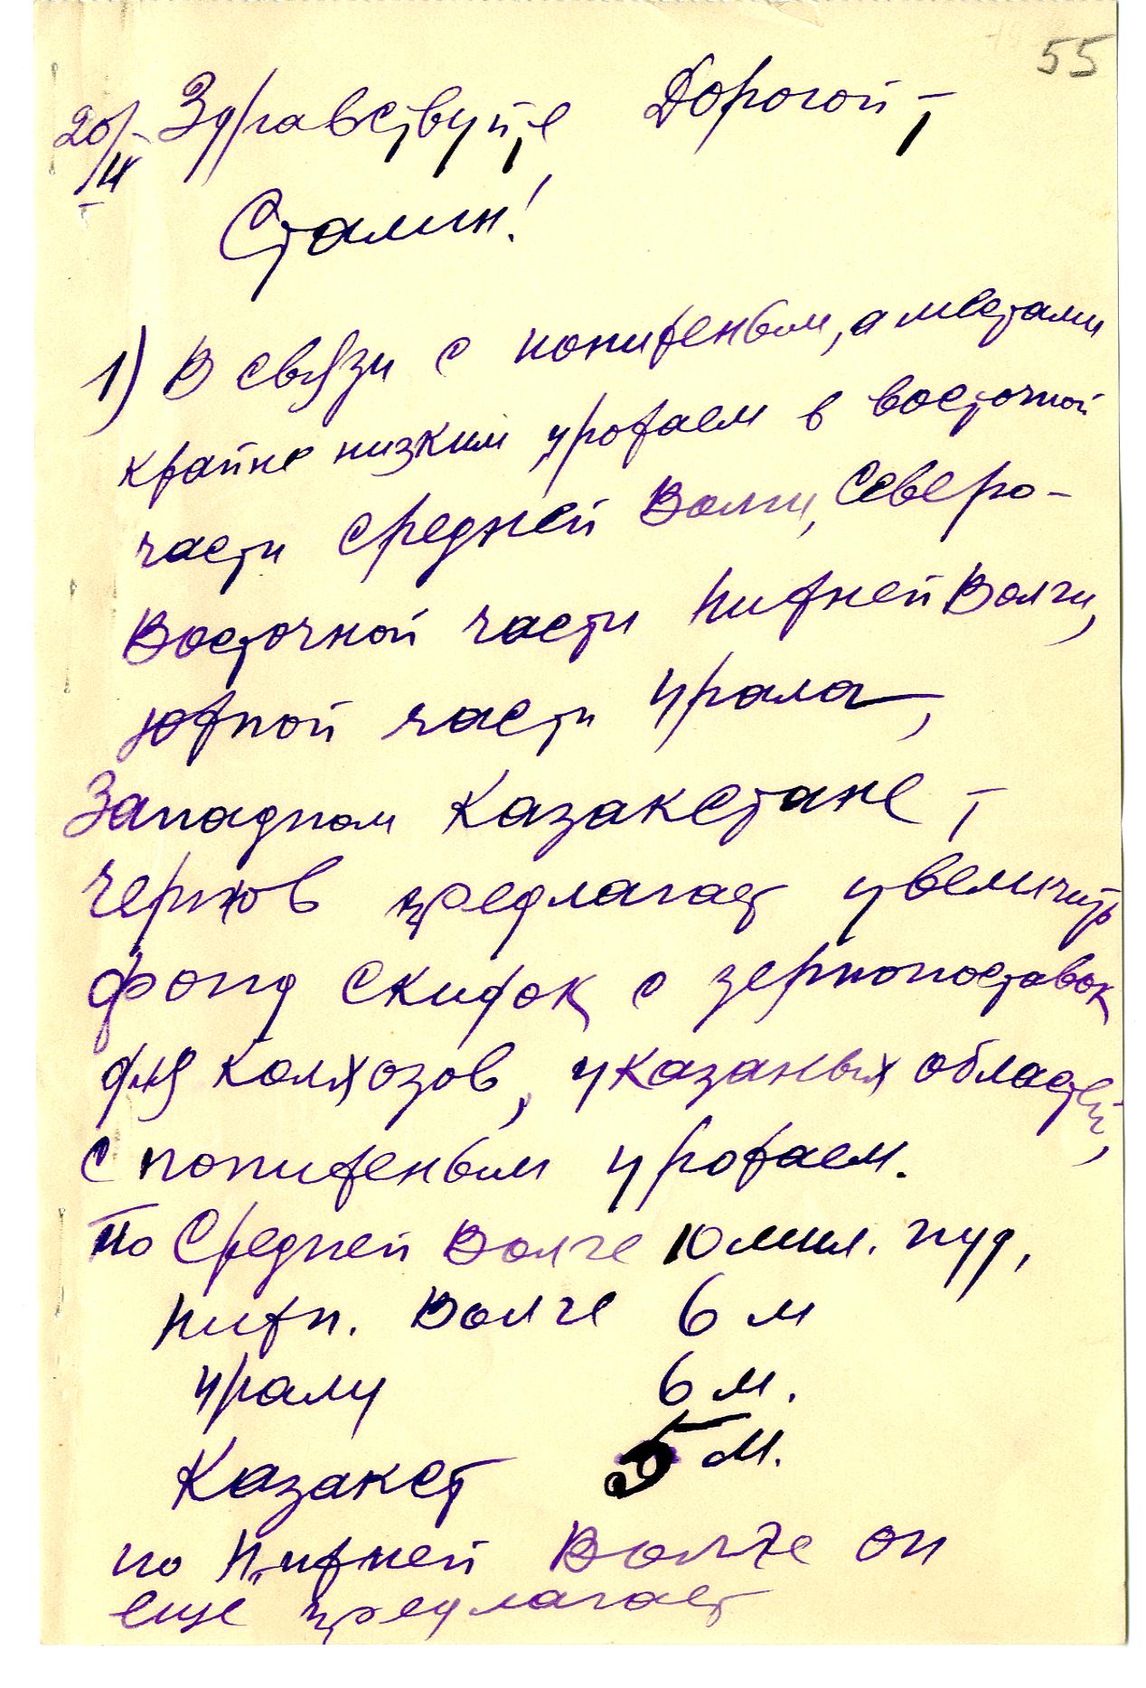 55
20/IX Здравствуйте Дорогой т
Сталин!
1) В связи с пониженым, а местами
крайне низким урожаем в восточной
части средней Волги, Северо-
Восточной части Нижней Волги,
южной части Урала,
Западном Казакстане т
Чернов предлагает увеличить
фонд скидок с зернопоставок
для колхозов, указаных областей,
с пониженым урожаем.
по Средней Волге 10 мил. пуд,
Нижн. Волге 6 м
Уралу 6 м.
Казакст 5 м.
по Нижней Волге он
еще предлагает